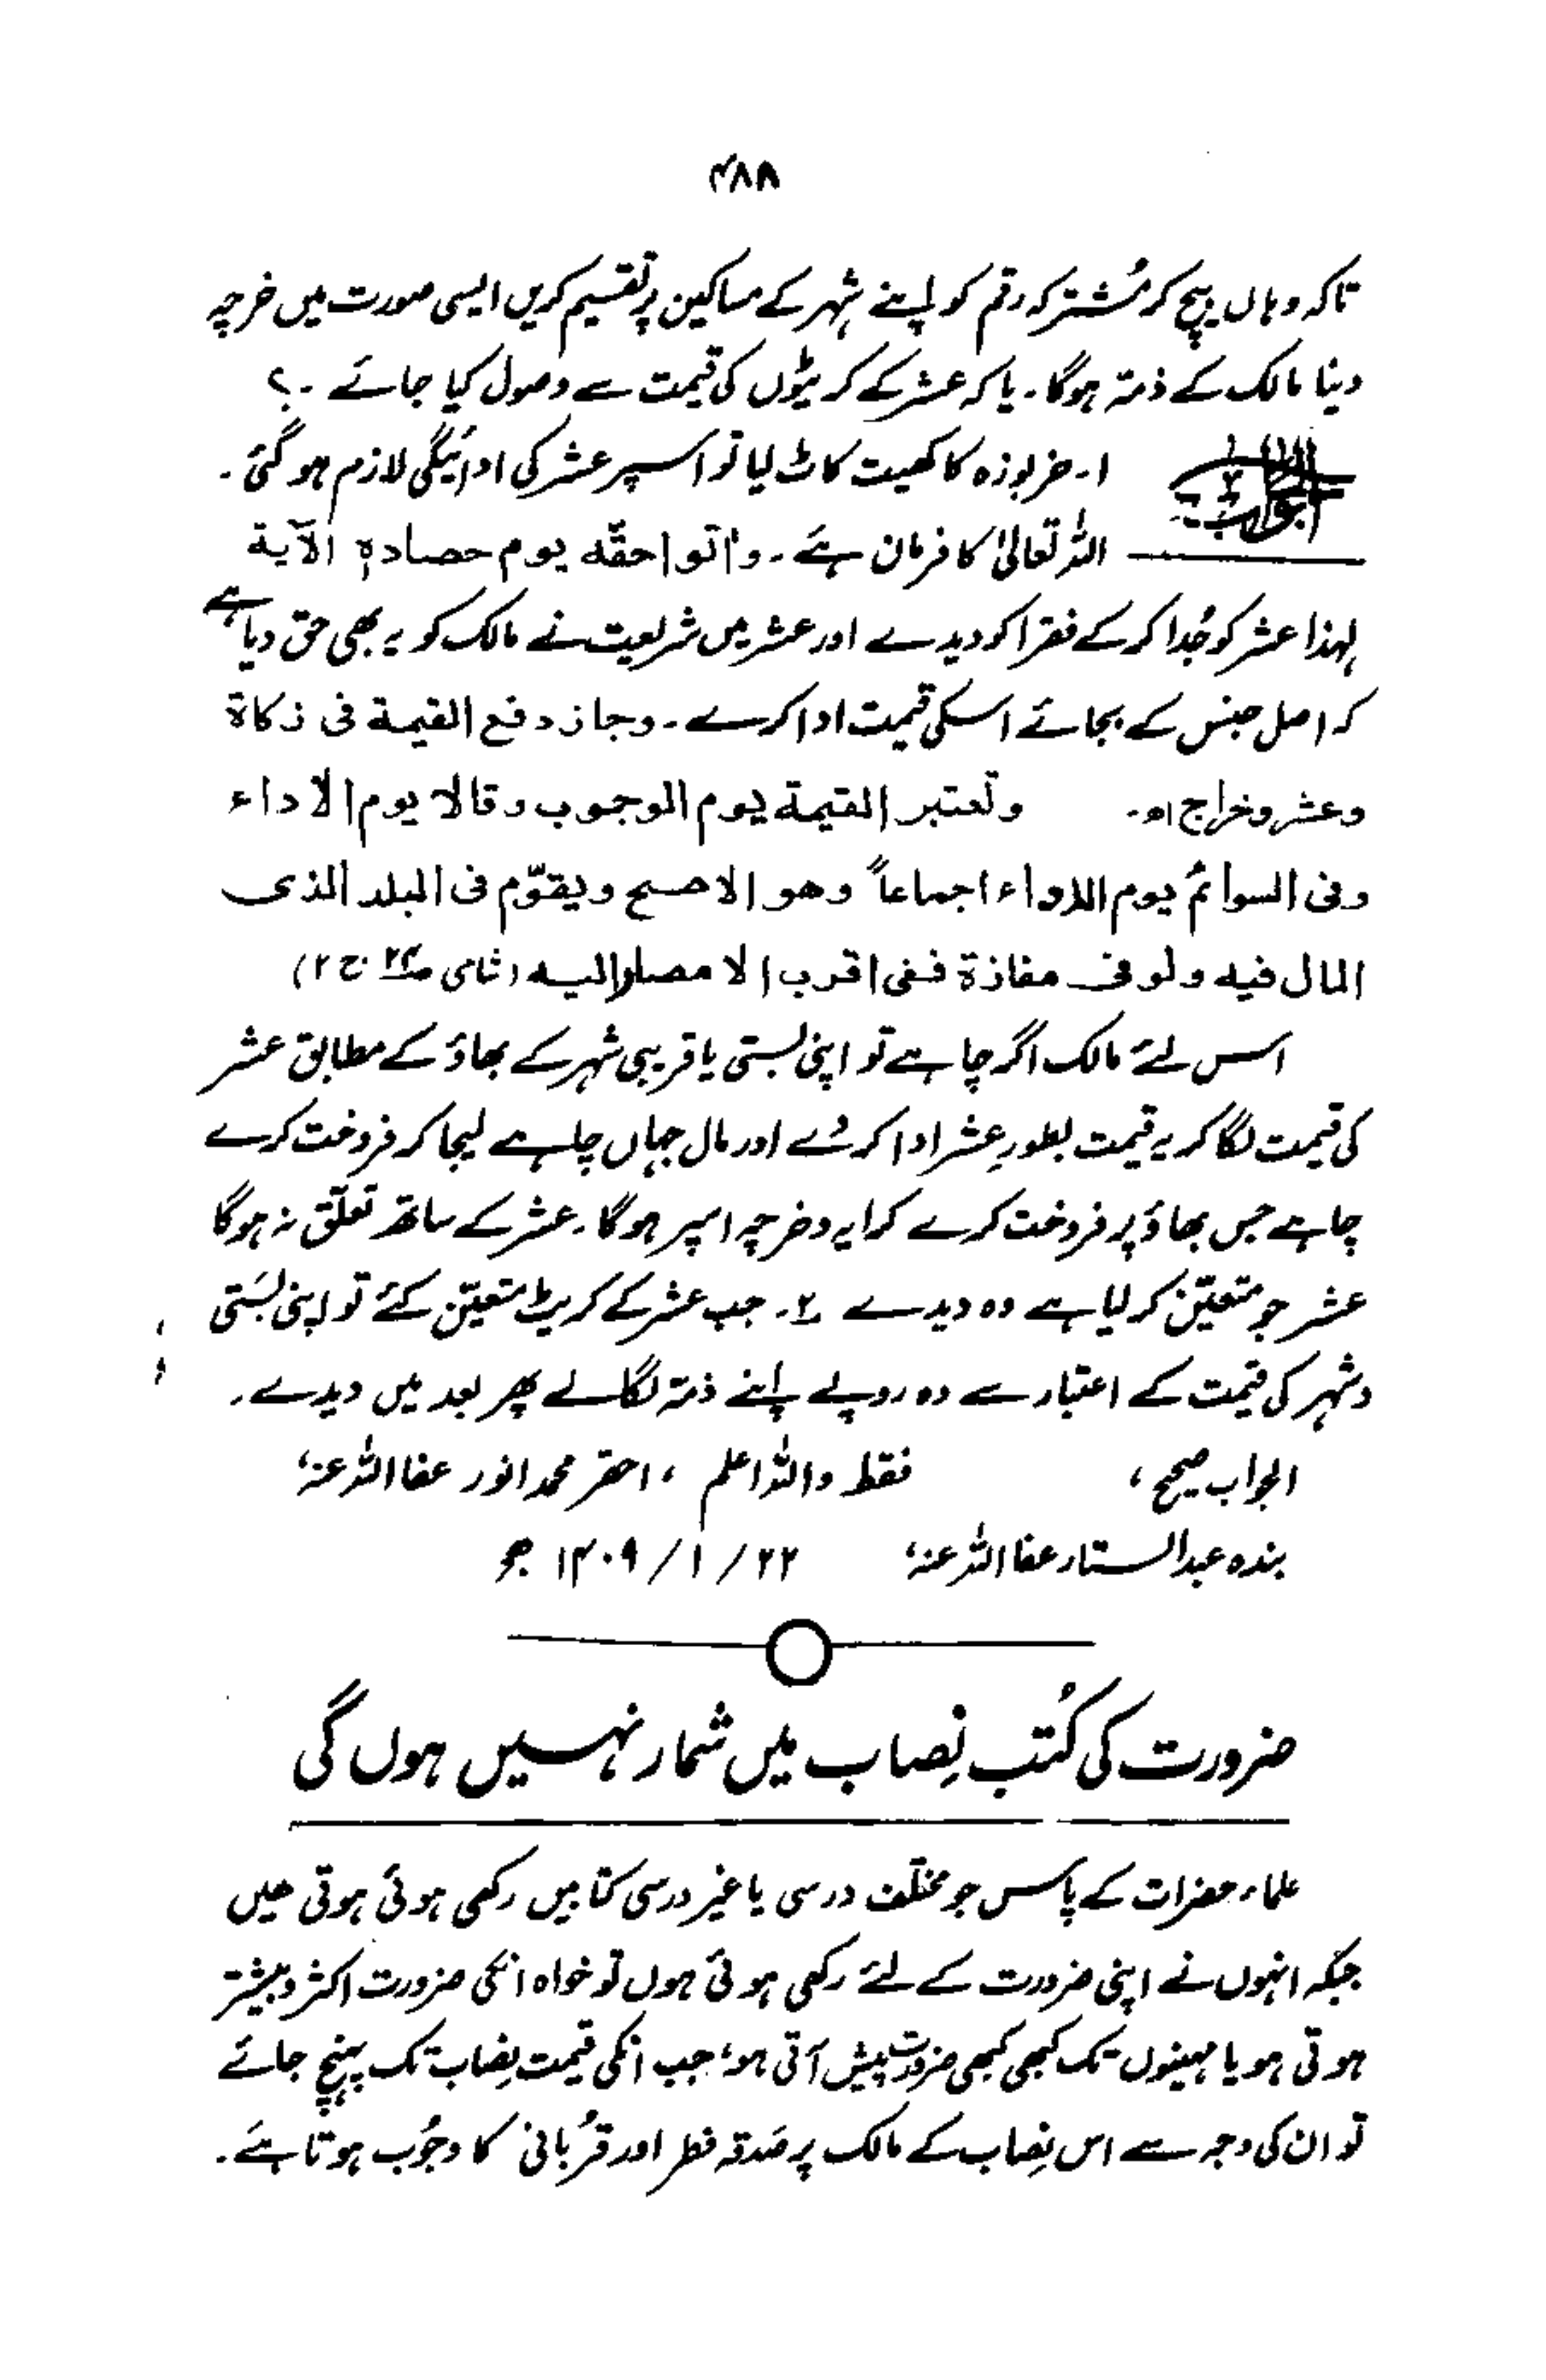 ۴۸۸
تاکہ وہاں بیچ کر مشترکہ رقم کو اپنے شہر کے مساکین پر تقسیم کریں ایسی صورت میں خرچہ
دینا مالک کے ذمّہ ہوگا۔ یا کہ عشر کے کریٹوں کی قیمت سے وصول کیا جائے۔؟
الجواب ۱۔ خربوزہ کا کھیت کاٹ لیا تو اس پر عشر کی ادائیگی لازم ہو گئی۔
اللہ تعالیٰ کا فرمان ہے۔ واٰتوا حقّه یوم حصادہٖ الآیة
لہذا عشر کو جُدا کر کے فقرا کو دیدے اور عشر میں شریعت نے مالک کو یہ بھی حق دیا ہے
کہ اصل جنس کے بجائے اسکی قیمت ادا کرے۔ وجاز دفع القیمة فی زکاة
وعشر وخراج اھ۔ وتعتبر القیمة یوم الوجوب وقالا یوم الاداء
وفی السوائم یوم الاداء اجماعاً وھو الاصح ویقوّم فی البلد الذی
المال فیه ولو فی مفازة ففی اقرب الامصار الیه (شامی ص۲۴ ج۲)
اس لئے مالک اگر چاہے تو اپنی بستی یا قریبی شہر کے بھاؤ کے مطابق عشر
کی قیمت لگا کر یہ قیمت بطورِ عشر ادا کر دے اور مال جہاں چاہے لیجا کر فروخت کرے
چاہے جس بھاؤ پر فروخت کرے کرایہ و خرچہ اسپر ہوگا۔ عشر کے ساتھ تعلّق نہ ہوگا
عشر جو متعیّن کر لیا ہے وہ دیدے ۲۔ جب عشر کے کریٹ متعیّن کئے تو اپنی بستی
و شہر کی قیمت کے اعتبار سے وہ روپے اپنے ذمّہ لگالے پھر بعد میں دیدے۔
الجواب صحیح، فقط واللہ اعلم، احقر محمد انور عفا اللہ عنہ،
بندہ عبدالستار عفا اللہ عنہ، ۲۲/۱/۱۴۰۹ھ
ضرورت کی کُتب نِصاب میں شمار نہیں ہوں گی
علماء حضرات کے پاس جو مختلف درسی یا غیر درسی کتابیں رکھی ہوئی ہوتی ہیں
جبکہ انہوں نے اپنی ضرورت کے لئے رکھی ہوئی ہوں تو خواہ انکی ضرورت اکثر و بیشتر
ہوتی ہو یا مہینوں تک کبھی کبھی ضرورت پیش آتی ہو، جب انکی قیمت نِصاب تک پہنچ جائے
تو ان کی وجہ سے اس نِصاب کے مالک پر صَدقہ فطر اور قُربانی کا وجُوب ہوتا ہے۔